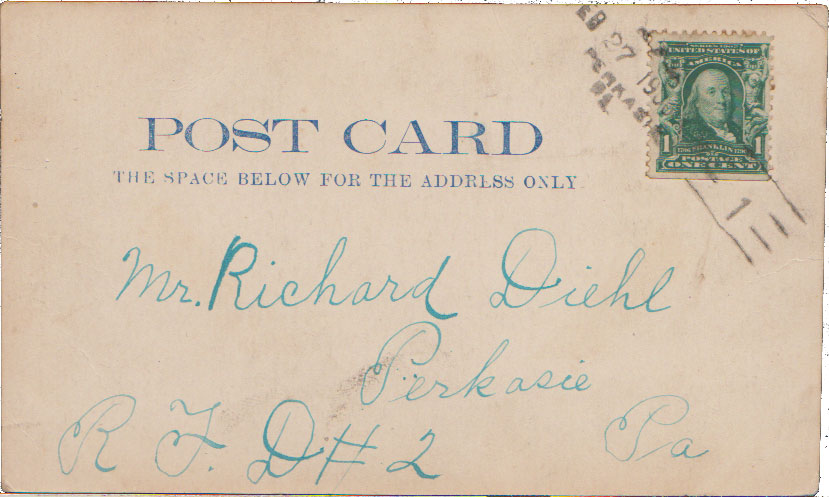 EB 27 190
PERKASIE
PA.
SERIES 1902
UNITED STATES OF
AMERICA
1 1706 FRANKLIN 1790 1
POSTAGE
ONE CENT
1
POST CARD
THE SPACE BELOW FOR THE ADDRESS ONLY.
Mr. Richard Diehl
Perkasie
R F. D # 2 Pa